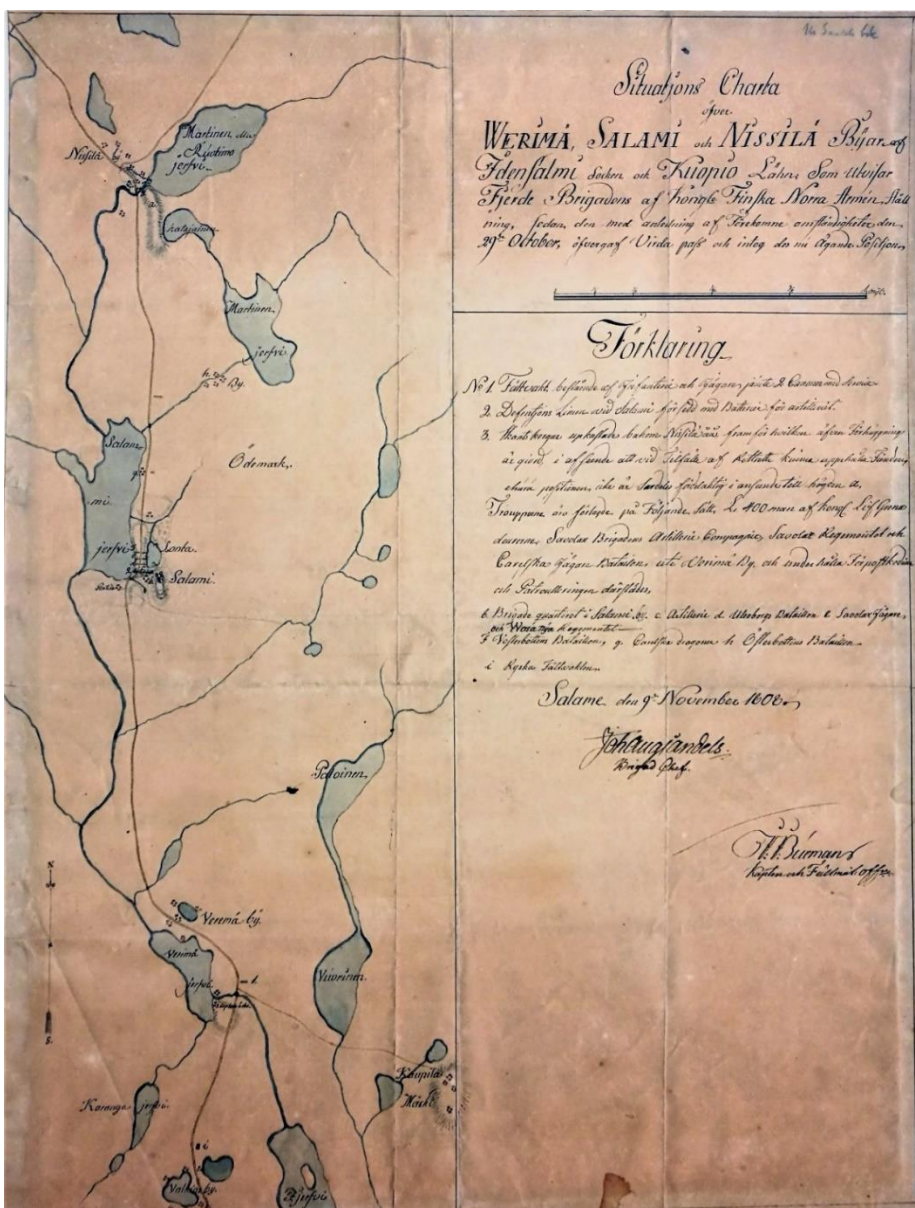 Situations Charta
öfver
WERIMÄ, SALAMI och NISSILÄ Byar af
Idensalmi Socken och Kuopio Lähn, Som utvisar
Fjerde Brigadens af Kongl. Finska Norra Armén Ställ
ning, sedan den med anledning af Förekomne omständigheter den
29de October, öfvergaf Virda pass och intog des nu ägande Position,
Förklaring
No 1. Fältvakt, bestående af Infanterie och Jägare, jämte 2 Canoner med
2. Defensions Linien vid Salami försedd med Batterier för artilleriet.
3. Skantskorgar upkastade bakom Nissilä framför hvilken äfven Förhuggning
är giord, i afseende att vid Tilfälle af Retraite kunna uppehålla Fienden
denna position, icke är fördelaktig i anseende till högden a.
Troupperne äro förlagde på Följande Sätt, 400 man af Kongl. Lif Grena
dieurerne, Savolax Brigadens Artillerie Compagnie, Savolax Regementet och
Carelska Jägare Bataillon, uti Verimä By, och under hålla Förpostkedian
och Patroulleringen därstädes,
b. Brigade quarteret i Salami by. c. Artillerie d. Uleborgs Bataillon e. Savolax Jägare,
och Wasa Regementet
f. Vesterbottens Bataillon, g. Carelska dragoner h. Österbottens Bataillon
i. Ryska Fältvakten.
Salame den 9de November 1808.
Joh Aug Sandels.
Brigad Chef.
Burman
Kapten och Fältmät. off.
Nissilä by
Martinen
jerfvi.
Martinen
jerfvi
By.
Ödemark.
Salam
mi
jerfvi
Salami.
Paloinen,
Veremä by.
Verimä
jerfvi
Vuorinen.
Koupila
Mäki
Karanga jerfvi.
by.
jerfvi
N
S.